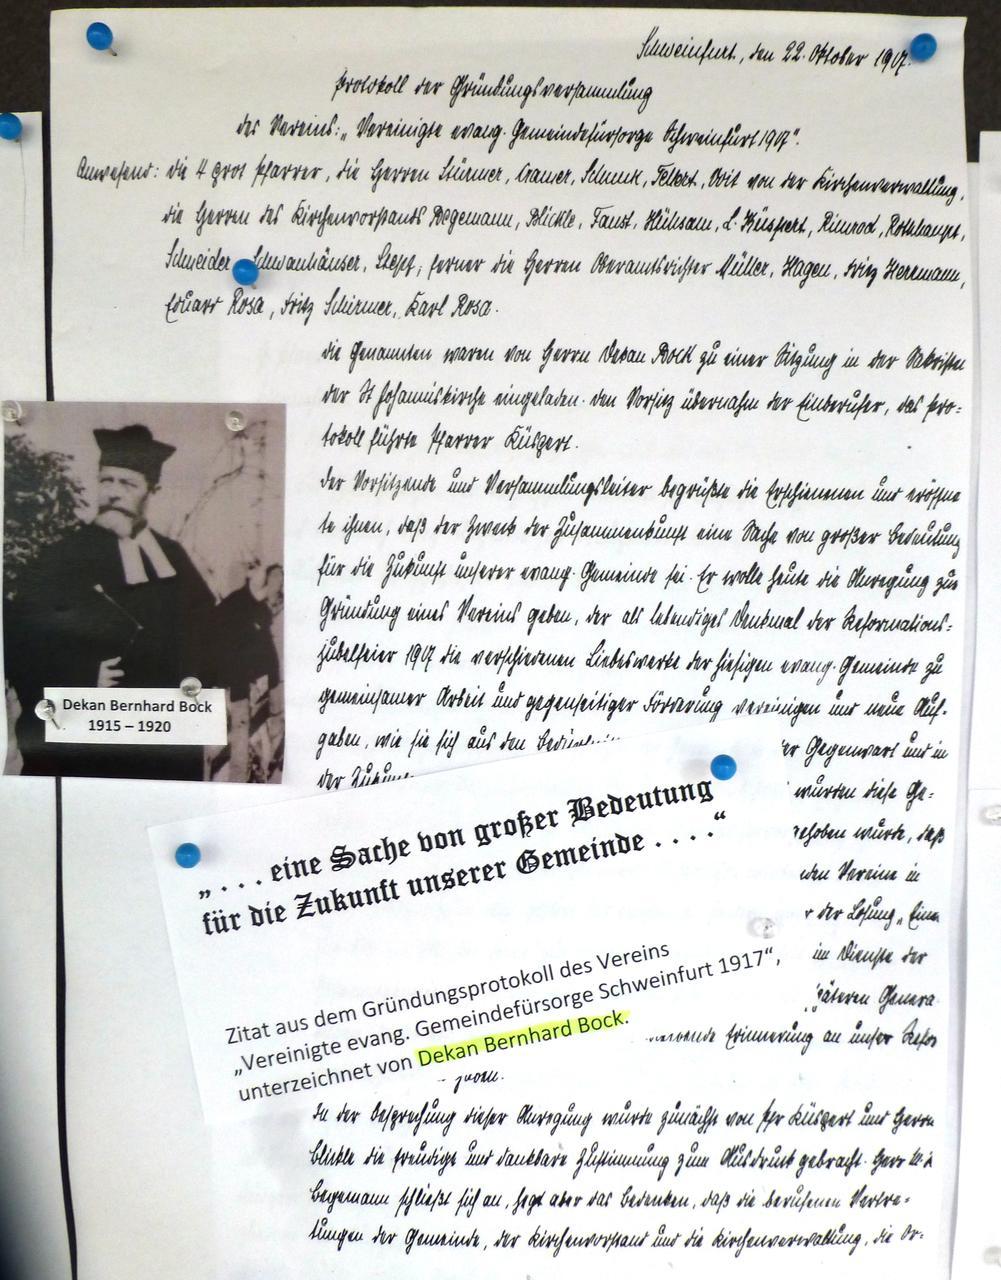 Schweinfurt, den 22. Oktober 1917.
Protokoll der Gründungsversammlung
des Vereins: „Vereinigte evang. Gemeindefürsorge Schweinfurt 1917".
Anwesend: die 4 prot Pfarrer, die Herren Stürmer, Cramer, Schunk, Voit von der Kirchenverwaltung,
die Herren des Kirchenvorstands Begemann, Blickle, Faust, Hühsam, L. Küspert, Rimrod, Rothhaupt,
Schneider, Schwanhäuser, Stepf; ferner die Herren Oberamtsrichter Müller, Hagen, Fritz Herrmann,
Eduard Rosa, Fritz Schirmer, Karl Rosa.
die Genannten waren von Herrn Dekan Bock zu einer Sitzung in der Sakristei
der St Johanniskirche eingeladen. den Vorsitz übernahm der Einberufer, das Pro-
tokoll führte Pfarrer Küspert.
der Vorsitzende und Versammlungsleiter begrüßte die Erschienenen und eröffne
te ihnen, daß der Zweck der Zusammenkunft eine Sache von großer Bedeutung
für die Zukunft unserer evang. Gemeinde sei. Er wolle heute die Anregung zur
Gründung eines Vereins geben, der als lebendiges Denkmal der Reformations-
jubelfeier 1917 die verschiedenen Liebeswerke der hiesigen evang. Gemeinde zu
gemeinsamer Arbeit und gegenseitiger Förderung vereinigen und neue Auf-
gaben, wie sie sich aus den er Gegenwart und in
der wurden diese Ge-
ehoben wurde, daß
den Vereine in
der Losung „Eine
im Dienste der
päteren Genera
Erinnerung an unser Refor
In der Besprechung dieser Anregung wurde zunächst von Pfr Küspert und Herrn
Blickle die freudige und dankbare Zustimmung zum Ausdruck gebracht. Herr
Begemann schließt sich an, hegt aber das Bedenken, daß die berufenen Vertre-
tungen der Gemeinde, der Kirchenvorstand und die Kirchenverwaltung, die Or-
Dekan Bernhard Bock
1915 – 1920
„ . . . eine Sache von großer Bedeutung
für die Zukunft unserer Gemeinde . . . ."
Zitat aus dem Gründungsprotokoll des Vereins
„Vereinigte evang. Gemeindefürsorge Schweinfurt 1917",
unterzeichnet von Dekan Bernhard Bock.